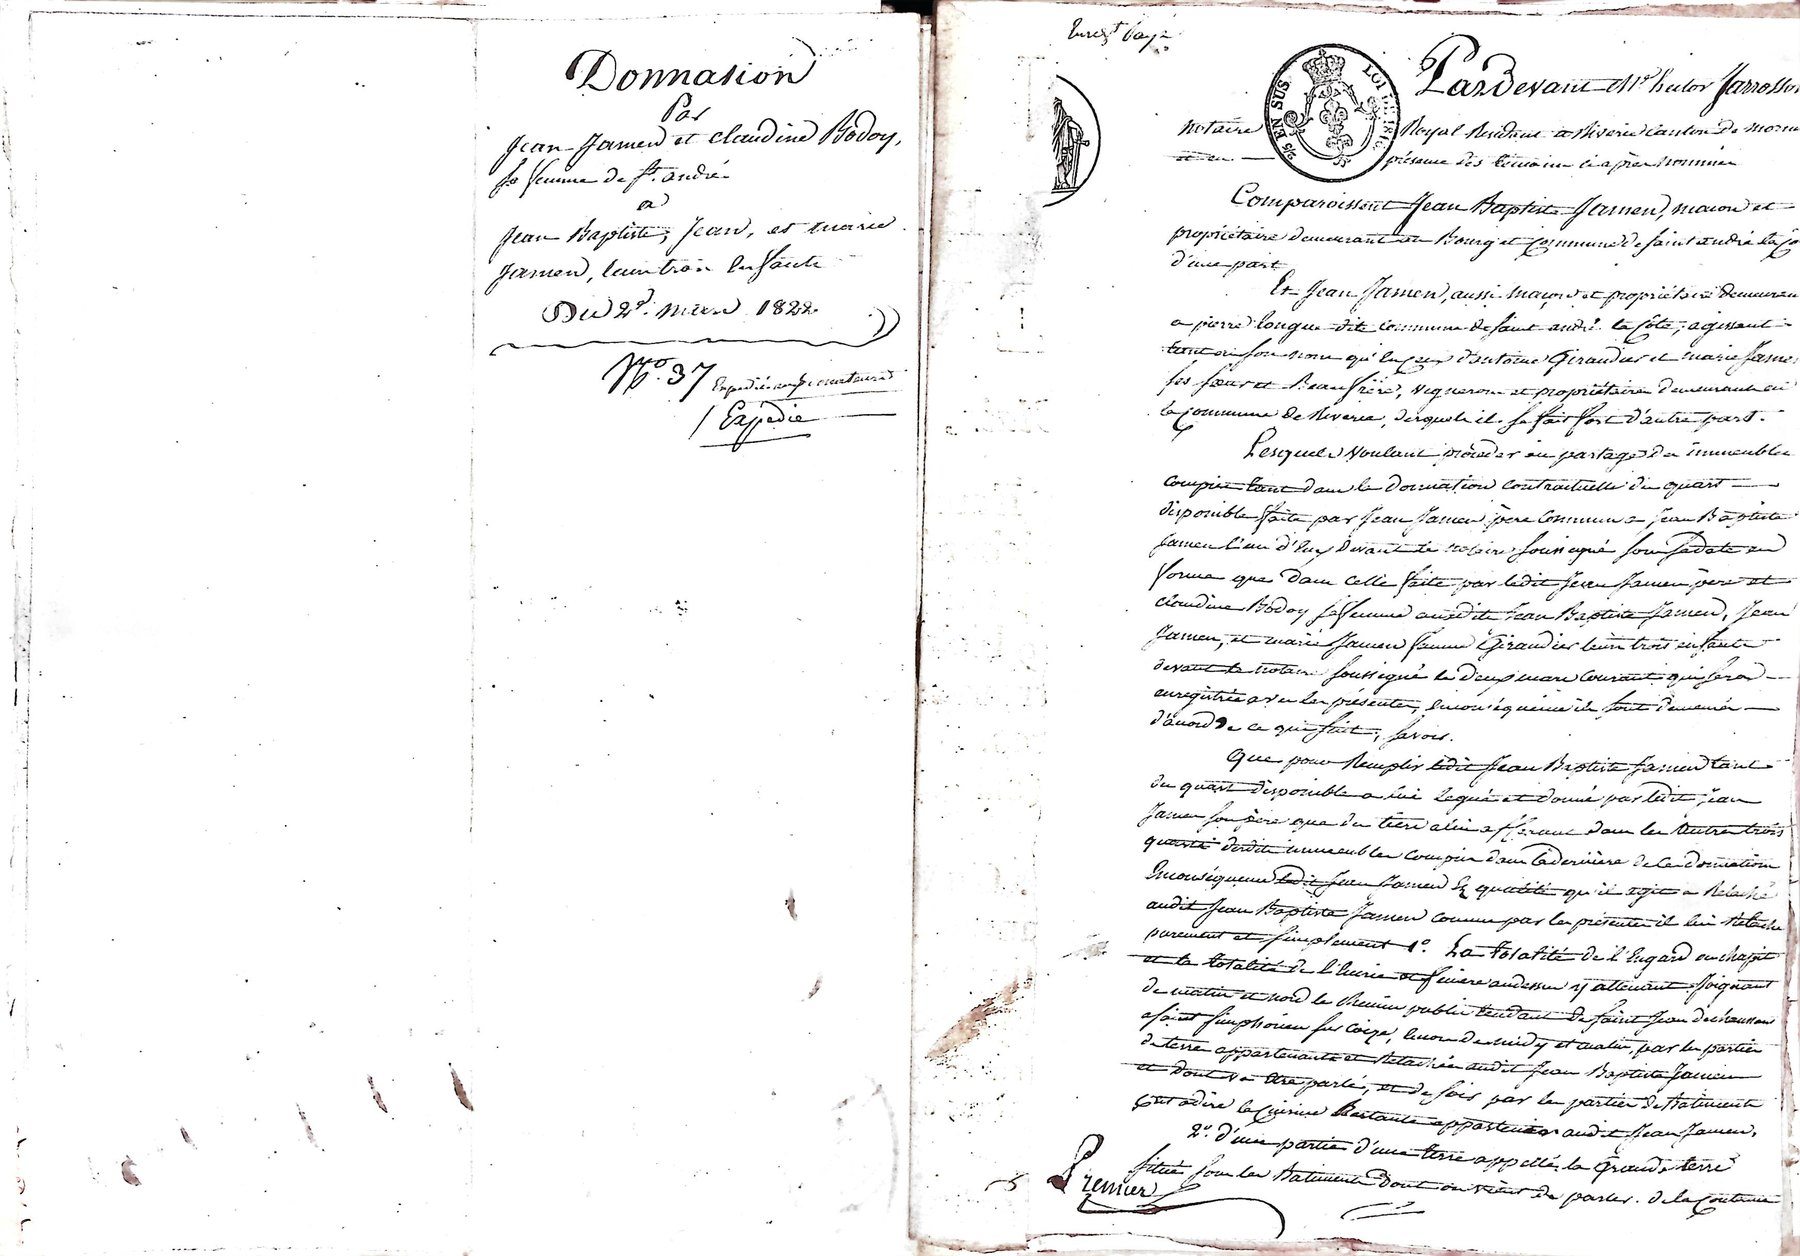 Donnasion
Par
Jean Jamen et Claudine Bodoy,
sa femme de St. andré
a
Jean Baptiste, Jean, et marie
Jamen, leurs trois Enfants
Du 2d. mars 1822
No. 37
1 Expedié
Enregt. page
5/s EN SUS
LOI DE 1816
Pardevant Me. hector Jarrosson
notaire Royal Residant a Riverie canton de morna
et en présence des témoins ci après nommés
Comparoissent Jean Baptiste Jamen, macon et
propriétaire demeurant au Bourg et Commune de saint andré la Co
d'une part
Et Jean Jamen, aussi maçon et propriétaire demeuran
a pierre longue dite commune de saint andré la Côte, agissant
tant en son nom qu'en ceux d'antoine Giraudier et marie Jame
ses sœur et Beaufrère, vigneron et propriétaire demeurants en
la Commune de Riverie, desquels il se fait fort d'autre part.
Lesquels voulant procéder au partage des immeubles
compris tant dans la donnation contractuelle du quart
disponible faite par Jean Jamen père commun a Jean Baptiste
Jamen l'un d'eux devant le notaire soussigné sous sa date en
forme que dans celle faite par ledit Jean Jamen père et
claudine Bodoy sa femme auxdits Jean Baptiste Jamen, Jean
Jamen, et marie Jamen femme Giraudier leurs trois enfants
devant le notaire soussigné le deux mars courant qui sera
enregistrée avec les présentes, en conséquence ils sont demeurés
d'accord de ce qui suit, savoir.
Que pour Remplir ledit Jean Baptiste Jamen tant
du quart disponible a lui legué et donné par ledit Jean
Jamen son père que du tiers a lui afférant dans les autres trois
quarts desdits immeubles compris dans la dernière de la donnation
En conséquence ledit Jean Jamen Ez qualité qu'il agit a Relaché
audit Jean Baptiste Jamen comme par les présentes il lui Relache
purement et simplement 1o. La totalité de l'Engard ou chapit
et la totalité de l'Ecurie et feniere audessus y attenant Joignant
de matin et nord le chemin public tendant de saint Jean de chaussan
a saint simphorien sur Coize, encore de midy et matin, par les parties
de terre appartenante et Relachée audit Jean Baptiste Jamen
et dont va etre parlé, et de soir par les parties de Batiments
c'est adire la Cuisine Restante appartenir audit Jean Jamen.
2o. d'une partie d'une terre appellée la Grande terre
située sous les Batiments dont on vient de parler. de la Contenue
Premier